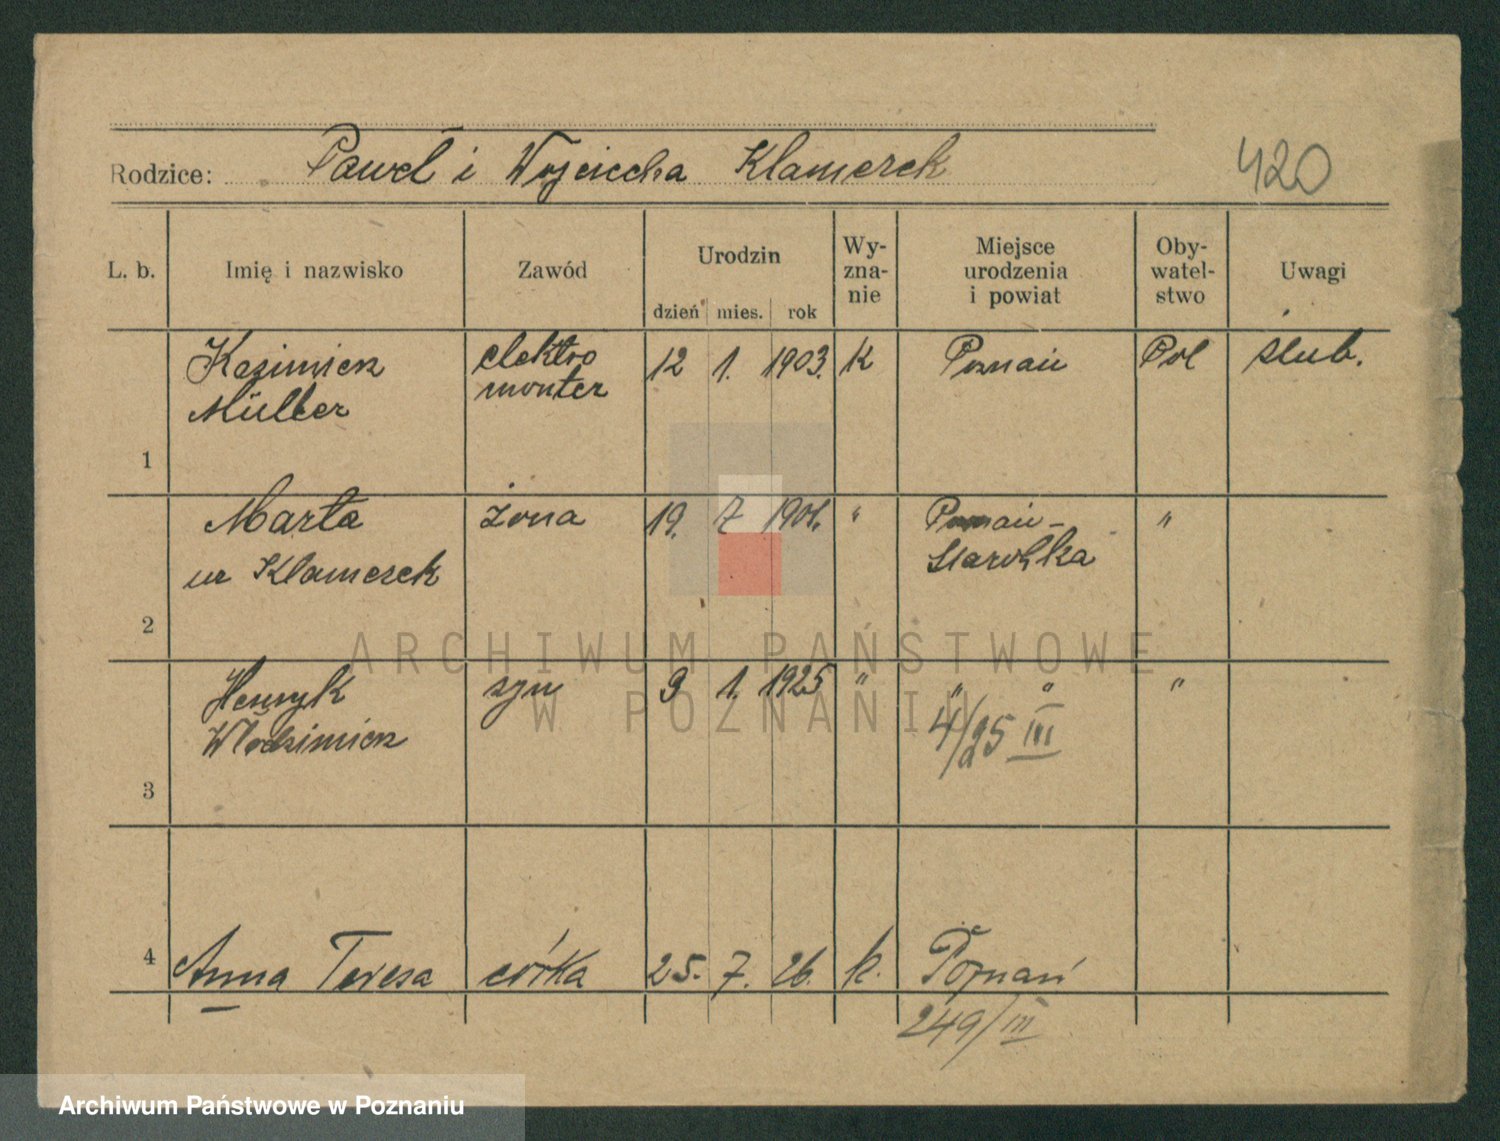 Rodzice: Paweł i Wojciecha Klamerek
420
L. b. Imię i nazwisko Zawód Urodzin Wy-zna-nie Miejsce urodzenia i powiat Oby-watel-stwo Uwagi
dzień mies. rok
Kazimierz elektro 12 1. 1903. K Poznań Pol ślub.
Müller monter
1
Marta żona 19. 7 1901. " Poznań- "
ur Klamerek Starołka
2
Henryk syn 9 1. 1925 " " " "
Włodzimierz 4/25 III
3
4 Anna Teresa córka 25. 7. 26. k. Poznań
249/III
ARCHIWUM PAŃSTWOWE
W POZNANIU
Archiwum Państwowe w Poznaniu